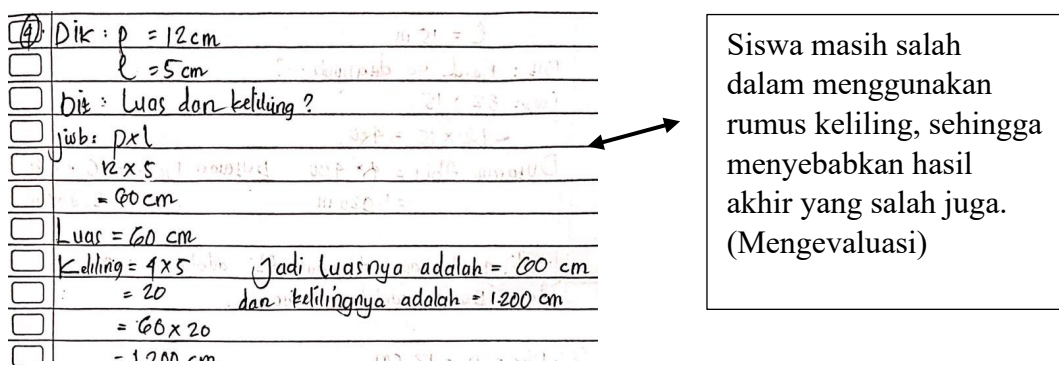 4. Dik : p = 12 cm
l = 5 cm
Dit : Luas dan keliling ?
Jwb : p x l
12 x 5
= 60 cm
Luas = 60 cm
Keliling = 4 x 5 Jadi luasnya adalah = 60 cm
= 20 dan kelilingnya adalah = 1.200 cm
= 60 x 20
= 1.200 cm
Siswa masih salah
dalam menggunakan
rumus keliling, sehingga
menyebabkan hasil
akhir yang salah juga.
(Mengevaluasi)